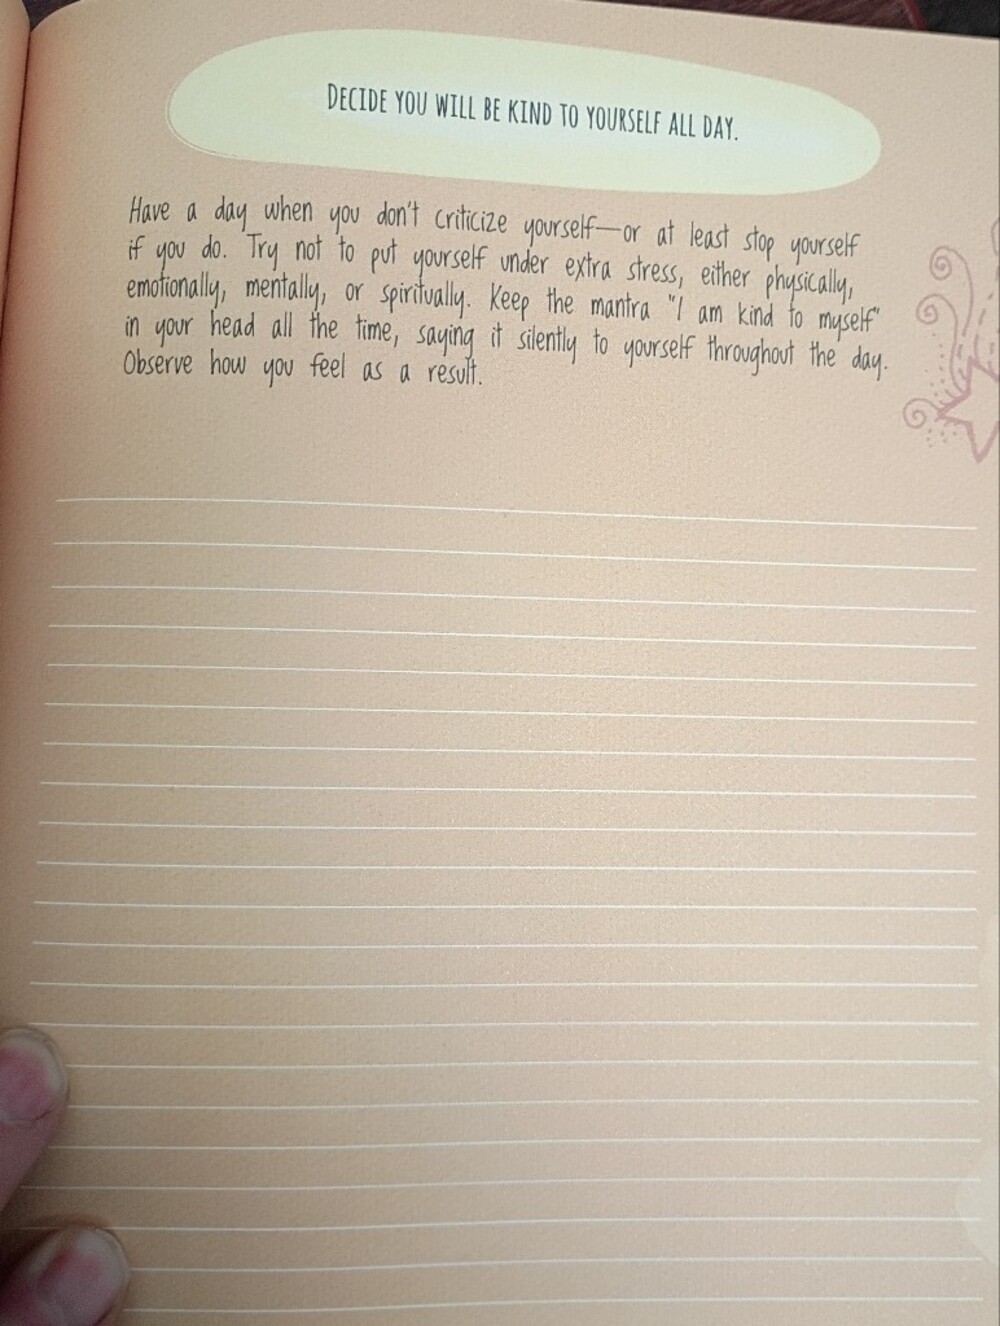 DECIDE YOU WILL BE KIND TO YOURSELF ALL DAY.
Have a day when you don't criticize yourself—or at least stop yourself
if you do. Try not to put yourself under extra stress, either physically,
emotionally, mentally, or spiritually. Keep the mantra "I am kind to myself"
in your head all the time, saying it silently to yourself throughout the day.
Observe how you feel as a result.